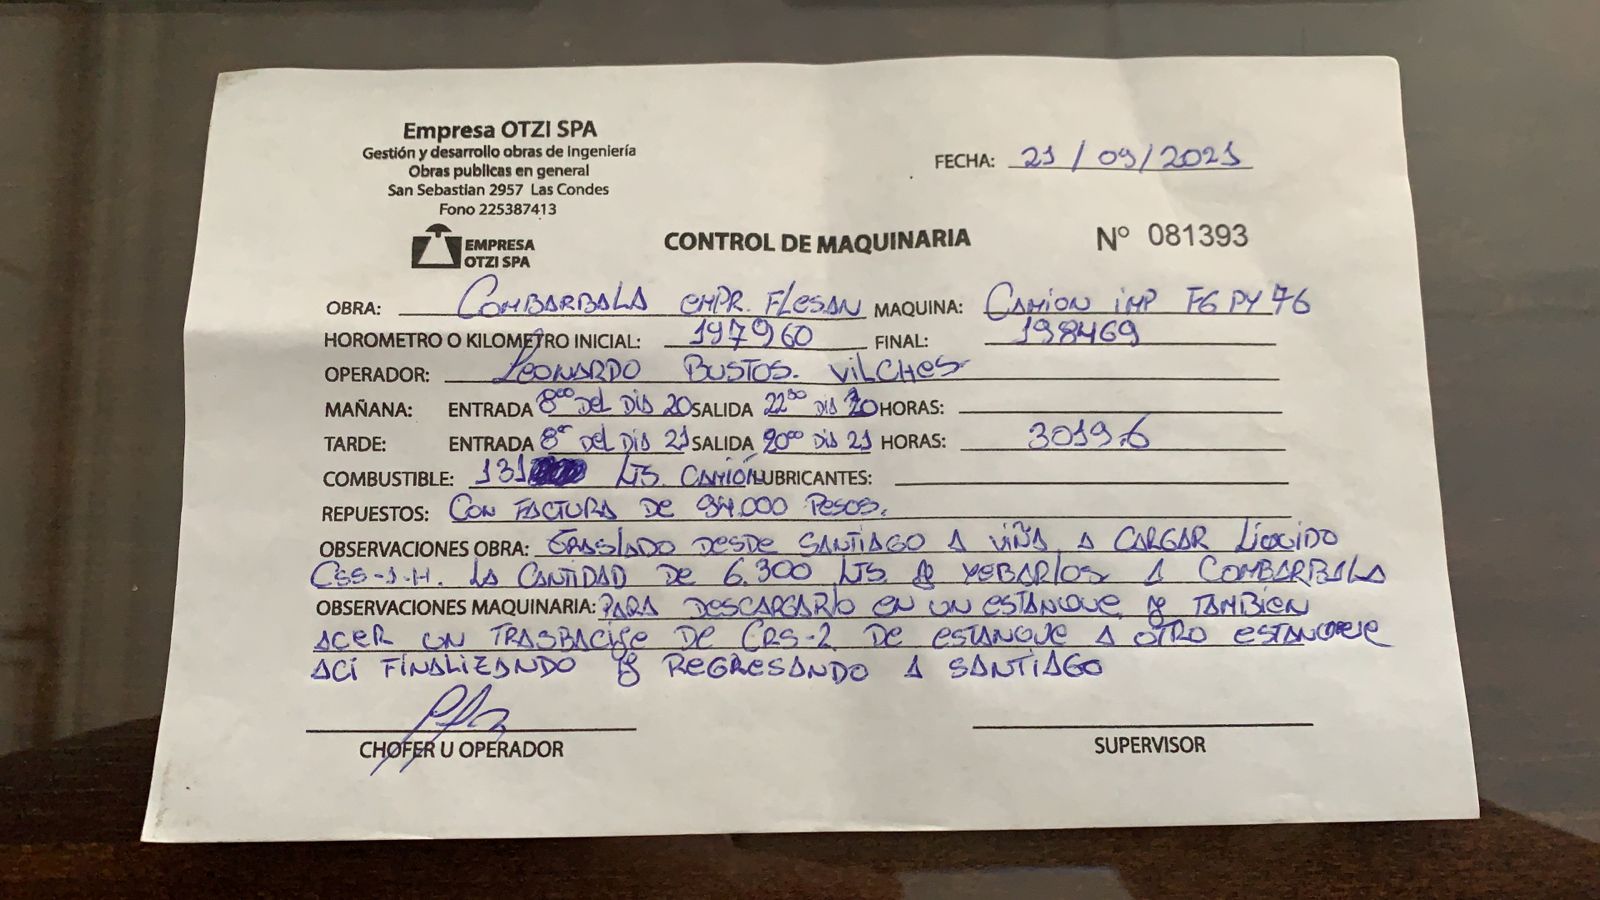 Empresa OTZI SPA
Gestión y desarrollo obras de Ingeniería
Obras publicas en general
San Sebastian 2957 Las Condes
Fono 225387413
EMPRESA
OTZI SPA
FECHA: 21/09/2021
CONTROL DE MAQUINARIA
N° 081393
OBRA: COMBARBALA EMPR. FLESAN MAQUINA: CAMION IMP FGPY76
HOROMETRO O KILOMETRO INICIAL: 197960 FINAL: 198469
OPERADOR: LEONARDO BUSTOS. VILCHES
MAÑANA: ENTRADA 8°° DEL DIA 20 SALIDA 22³⁰ DIA 20 HORAS:
TARDE: ENTRADA 8°° DEL DIA 21 SALIDA 20°° DIA 21 HORAS: 3019.6
COMBUSTIBLE: 131 LTS. CAMIÓN LUBRICANTES:
REPUESTOS: CON FACTURA DE 94.000 PESOS.
OBSERVACIONES OBRA: TRASLADO DESDE SANTIAGO A VIÑA A CARGAR LÍQUIDO
CSS-1-H. LA CANTIDAD DE 6.300 LTS Y YEBARLOS A COMBARBALA
OBSERVACIONES MAQUINARIA: PARA DESCARGARLO EN UN ESTANQUE Y TAMBIEN
ACER UN TRASBACIJE DE CRS-2 DE ESTANQUE A OTRO ESTANQUE
ACI FINALIZANDO Y REGRESANDO A SANTIAGO
CHOFER U OPERADOR
SUPERVISOR